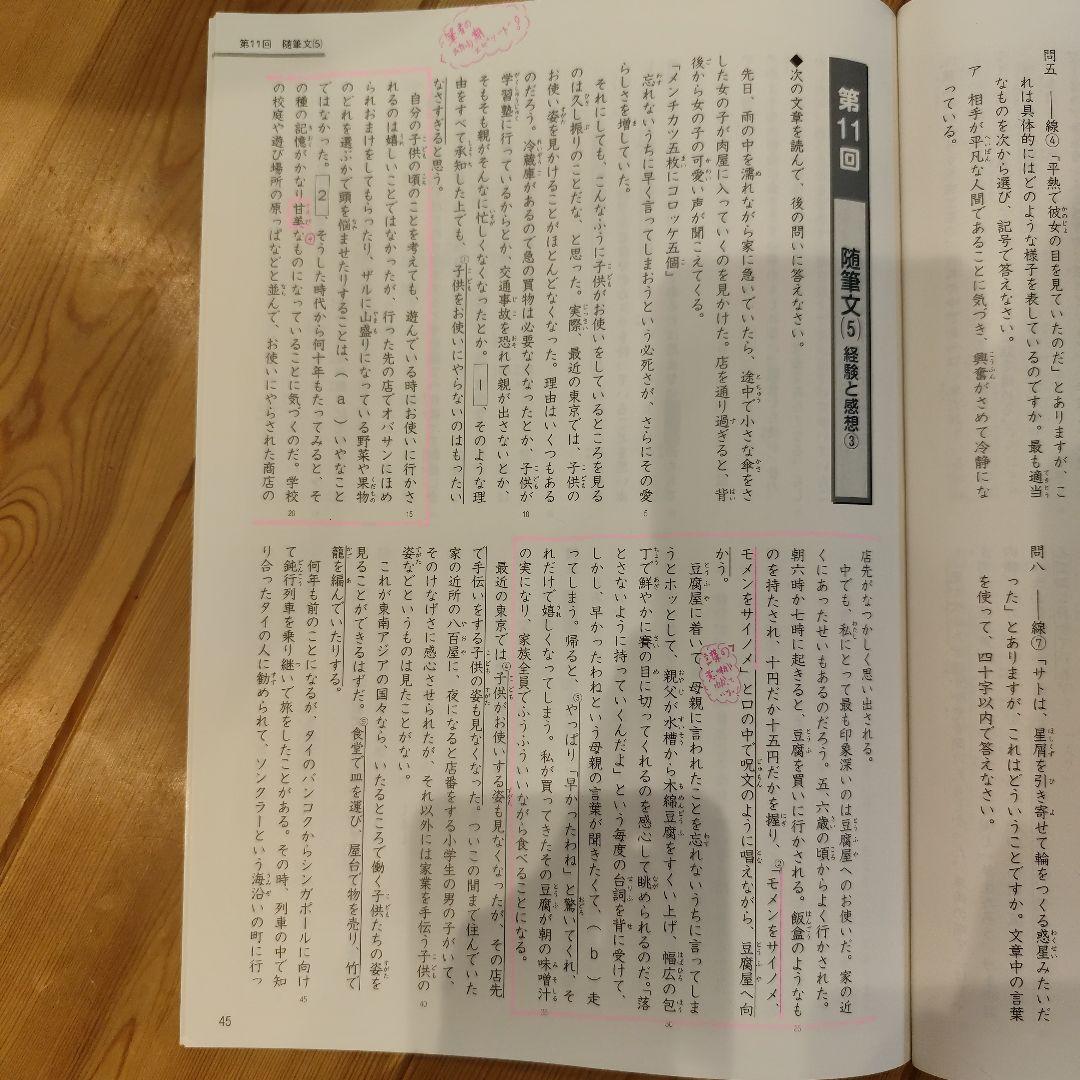 問五 ――線④「平熱で彼女の目を見ていたのだ」とありますが、こ
れは具体的にはどのような様子を表しているのですか。最も適当
なものを次から選び、記号で答えなさい。
ア 相手が平凡な人間であることに気づき、興奮がさめて冷静にな
っている。
問八 ――線⑦「サトは、星屑を引き寄せて輪をつくる惑星みたいだ
った」とありますが、これはどういうことですか。文章中の言葉
を使って、四十字以内で答えなさい。
第11回 随筆文(5)
第11回 随筆文(5) 経験と感想③
◆次の文章を読んで、後の問いに答えなさい。
先日、雨の中を濡れながら家に急いでいたら、途中で小さな傘をさ
した女の子が肉屋に入っていくのを見かけた。店を通り過ぎると、背
後から女の子の可愛い声が聞こえてくる。
「メンチカツ五枚にコロッケ五個」
忘れないうちに早く言ってしまおうという必死さが、さらにその愛
らしさを増していた。
5
それにしても、こんなふうに子供がお使いをしているところを見る
のは久し振りのことだな、と思った。実際、最近の東京では、子供の
お使い姿を見かけることがほとんどなくなった。理由はいくつもある
のだろう。冷蔵庫があるので急の買物は必要なくなったとか、子供が
10
学習塾に行っているからとか、交通事故を恐れて親が出さないとか、
そもそも親がそんなに忙しくなくなったとか。 1 、そのような理
由をすべて承知した上でも、①子供をお使いにやらないのはもったい
なさすぎると思う。
自分の子供の頃のことを考えても、遊んでいる時にお使いに行かさ
15
れるのは嬉しいことではなかったが、行った先の店でオバサンにほめ
られおまけをしてもらったり、ザルに山盛りになっている野菜や果物
のどれを選ぶかで頭を悩ませたりすることは、( a )いやなこと
ではなかった。 2 、そうした時代から何十年もたってみると、そ
の種の記憶がかなり甘美なものになっていることに気づくのだ。学校
20
の校庭や遊び場所の原っぱなどと並んで、お使いにやらされた商店の
店先がなつかしく思い出される。
中でも、私にとって最も印象深いのは豆腐屋へのお使いだ。家の近
くにあったせいもあるのだろう。五、六歳の頃からよく行かされた。
朝六時か七時に起きると、豆腐を買いに行かされる。飯盒のようなも
25
のを持たされ、十円だか十五円だかを握り、②「モメンをサイノメ、
モメンをサイノメ」と口の中で呪文のように唱えながら、豆腐屋へ向
かう。
豆腐屋に着いて、母親に言われたことを忘れないうちに言ってしま
うとホッとして、親父が水槽から木綿豆腐をすくい上げ、幅広の包
30
丁で鮮やかに賽の目に切ってくれるのを感心して眺められるのだ。「落
とさないように持っていくんだよ」という毎度の台詞を背に受けて、
しかし、早かったわねという母親の言葉が聞きたくて、( b )走
ってしまう。帰ると、③やっぱり「早かったわね」と驚いてくれ、そ
れだけで嬉しくなってしまう。私が買ってきたその豆腐が朝の味噌汁
35
の実になり、家族全員でふうふういいながら食べることになる。
最近の東京では④子供がお使いする姿も見なくなったが、その店先
で手伝いをする子供の姿も見なくなった。ついこの間まで住んでいた
家の近所の八百屋に、夜になると店番をする小学生の男の子がいて、
そのけなげさに感心させられたが、それ以外には家業を手伝う子供の
40
姿などというものは見たことがない。
これが東南アジアの国々なら、いたるところで働く子供たちの姿を
見ることができるはずだ。⑤食堂で皿を運び、屋台で物を売り、竹で
籠を編んでいたりする。
何年も前のことになるが、タイのバンコクからシンガポールに向け
45
て鈍行列車を乗り継いで旅をしたことがある。その時、列車の中で知
り合ったタイの人に勧められて、ソンクラーという海沿いの町に行っ
45